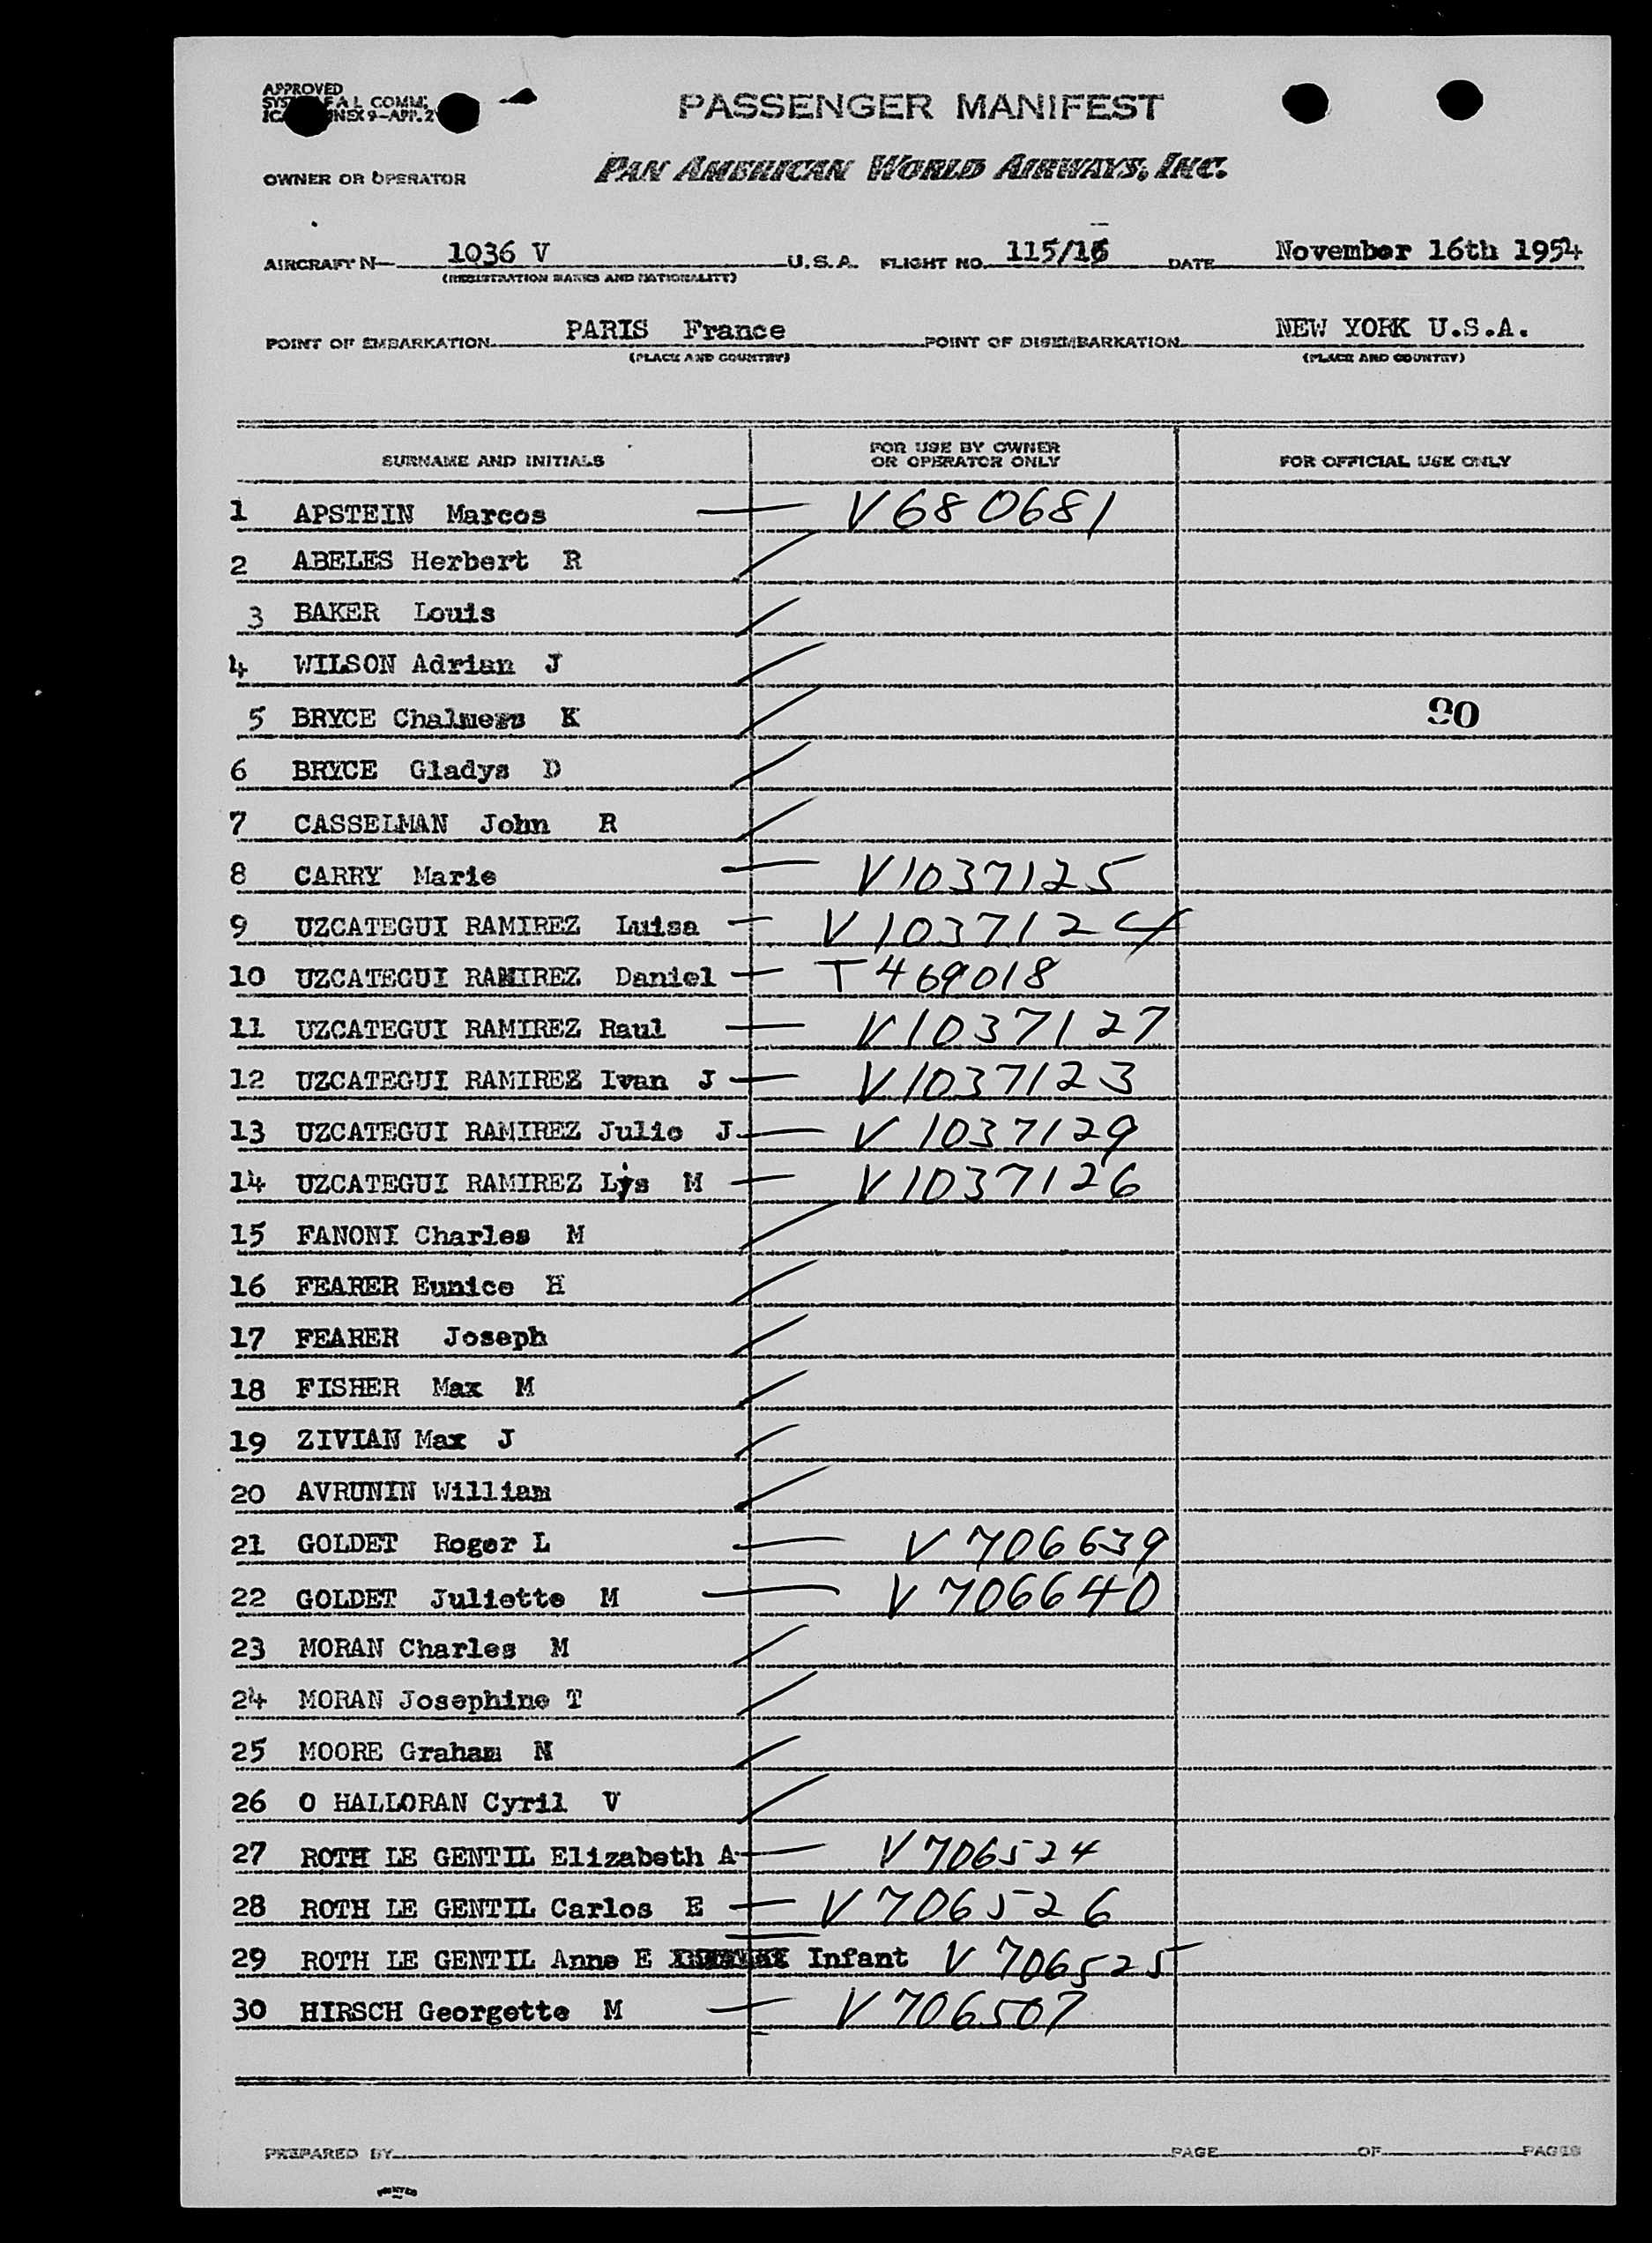 APPROVED
FAL COMM.
NEX 9-APP. 2
PASSENGER MANIFEST
OWNER OR OPERATOR PAN AMERICAN WORLD AIRWAYS, INC.
AIRCRAFT N— 1036 V U.S.A. FLIGHT NO. 115/16 DATE November 16th 1954
(REGISTRATION MARKS AND NATIONALITY)
POINT OF EMBARKATION PARIS France POINT OF DISEMBARKATION NEW YORK U.S.A.
(PLACE AND COUNTRY) (PLACE AND COUNTRY)
SURNAME AND INITIALS FOR USE BY OWNER OR OPERATOR ONLY FOR OFFICIAL USE ONLY
1 APSTEIN Marcos — V680681
2 ABELES Herbert R
3 BAKER Louis
4 WILSON Adrian J
5 BRYCE Chalmers K 90
6 BRYCE Gladys D
7 CASSELMAN John R
8 CARRY Marie — V1037125
9 UZCATEGUI RAMIREZ Luisa — V1037124
10 UZCATEGUI RAMIREZ Daniel — T469018
11 UZCATEGUI RAMIREZ Raul — V1037127
12 UZCATEGUI RAMIREZ Ivan J — V1037123
13 UZCATEGUI RAMIREZ Julio J — V1037129
14 UZCATEGUI RAMIREZ Lys M — V1037126
15 FANONI Charles M
16 FEARER Eunice H
17 FEARER Joseph
18 FISHER Max M
19 ZIVIAN Max J
20 AVRUNIN William
21 GOLDET Roger L — V706639
22 GOLDET Juliette M — V706640
23 MORAN Charles M
24 MORAN Josephine T
25 MOORE Graham N
26 O HALLORAN Cyril V
27 ROTH LE GENTIL Elizabeth A — V706524
28 ROTH LE GENTIL Carlos E — V706526
29 ROTH LE GENTIL Anne E Infant V706525
30 HIRSCH Georgette M — V706507
PREPARED BY PAGE OF PAGES